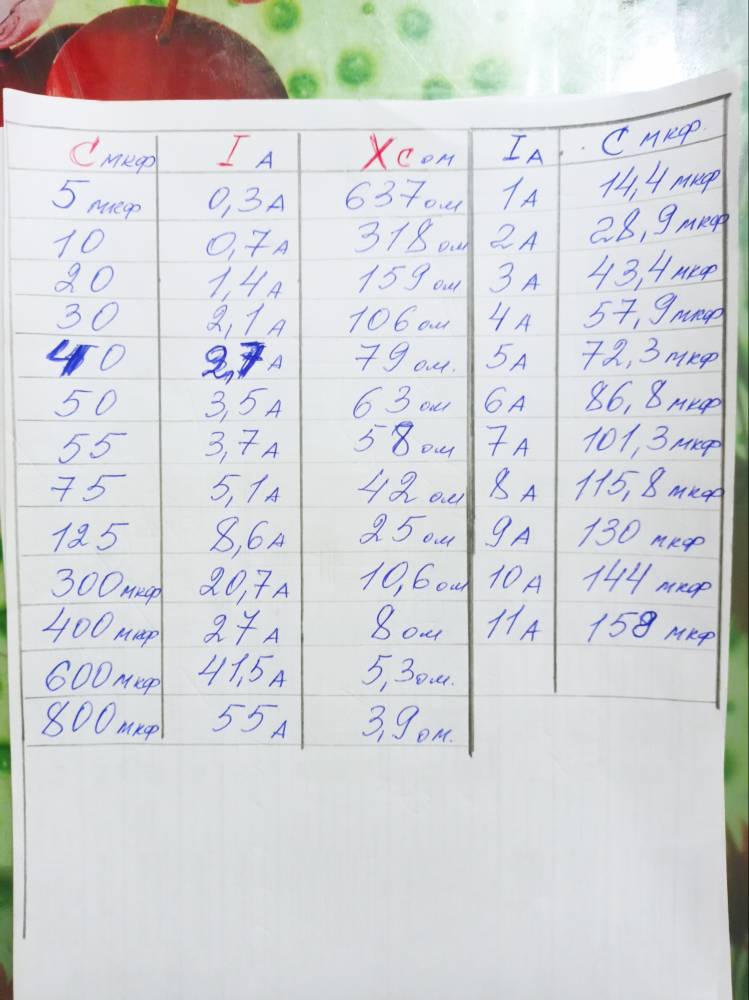 С мкф I А Xc ом I А С мкф.
5 мкф 0,3 А 637 ом 1 А 14,4 мкф
10 0,7 А 318 ом 2 А 28,9 мкф
20 1,4 А 159 ом 3 А 43,4 мкф
30 2,1 А 106 ом 4 А 57,9 мкф
40 2,7 А 79 ом. 5 А 72,3 мкф
50 3,5 А 63 ом 6 А 86,8 мкф
55 3,7 А 58 ом 7 А 101,3 мкф
75 5,1 А 42 ом 8 А 115,8 мкф
125 8,6 А 25 ом 9 А 130 мкф
300 мкф 20,7 А 10,6 ом 10 А 144 мкф
400 мкф 27 А 8 ом 11 А 158 мкф
600 мкф 41,5 А 5,3 ом.
800 мкф 55 А 3,9 ом.